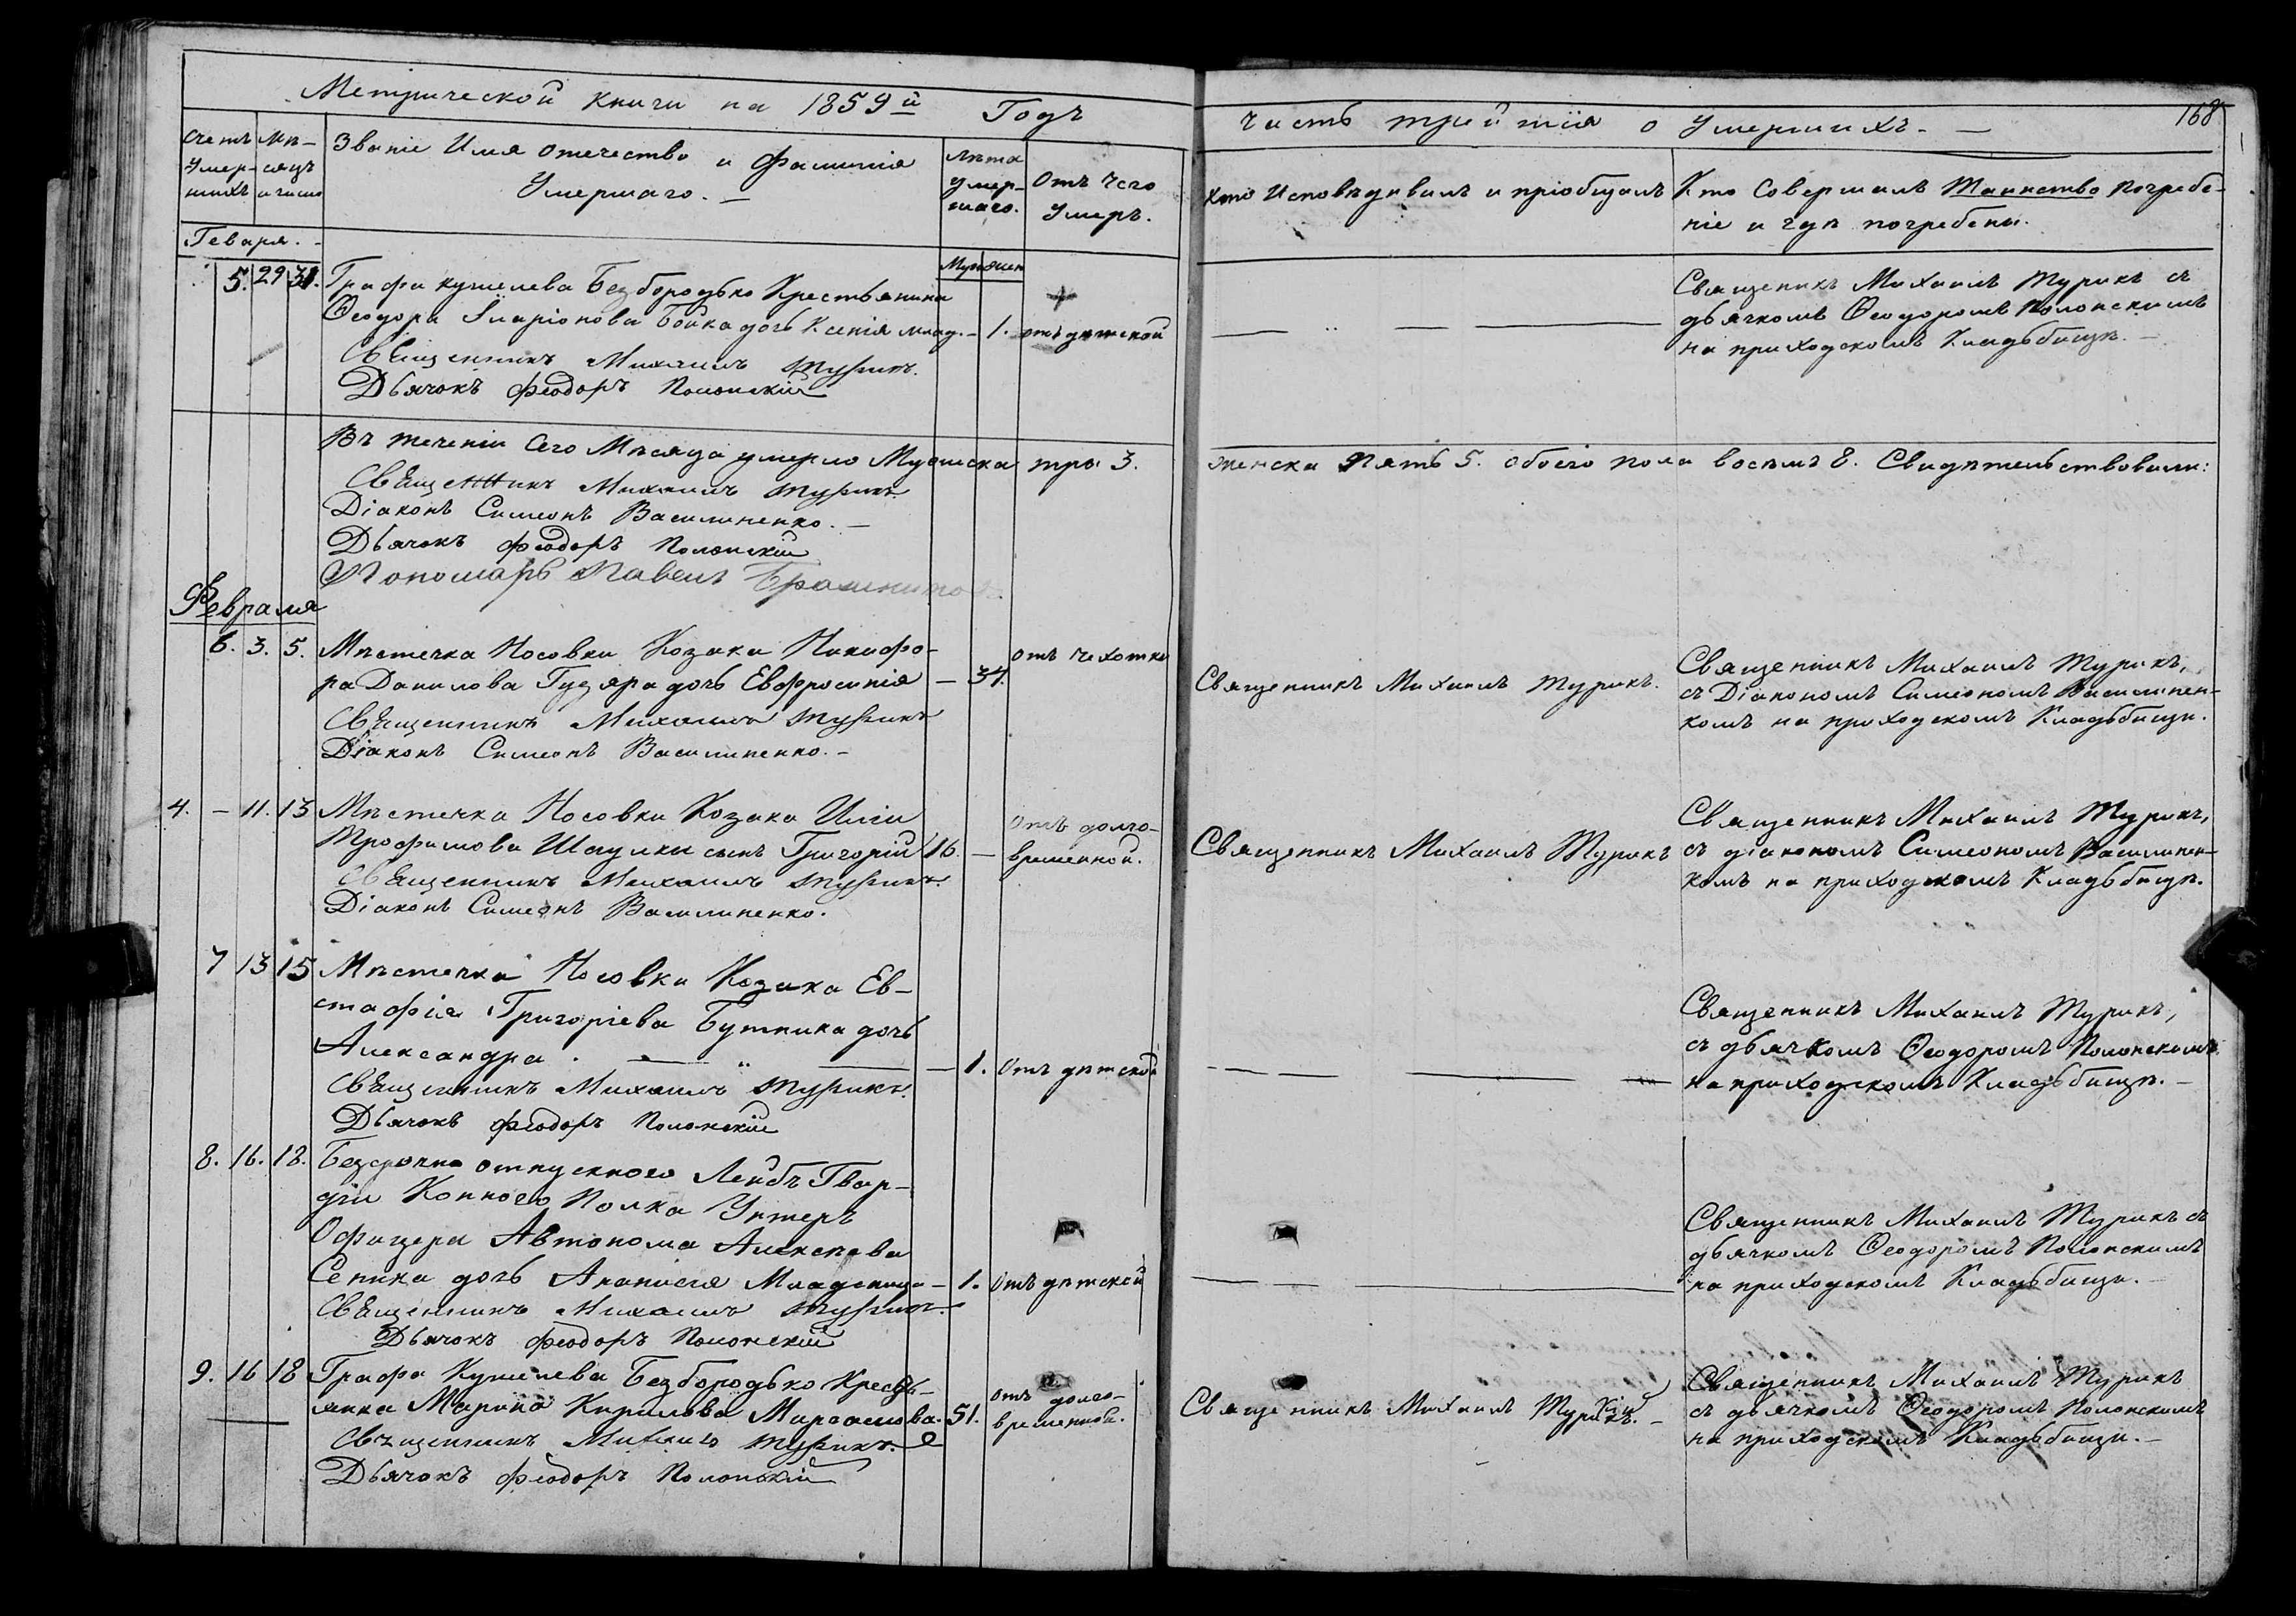 Метрической книги на 1859й Годъ
Счетъ умершихъ
Мѣсяцъ и число
Званіе Имя отечество и Фамилія
Умершаго. —
Лѣта умершаго.
Отъ чего умеръ.
Муж жен
Генваря.
5. 29 31. Графа кушелева Безбородько Крестьянина
Ѳеодора Иларіонова Бойка дочь Ксенія млад. — 1. отъ дѣтской
Священникъ Михаилъ Турикъ.
Дьячокъ Феодоръ Полонскій
Въ теченіи Сего Мѣсяца умерло Мужеска три 3.
Священникъ Михаилъ Турикъ.
Діаконъ Симеонъ Василиненко. —
Дьячокъ Феодоръ Полонскій
Пономарь Павелъ
Февраля
6. 3. 5. Мѣстечка Носовки Козака Никифо-
ра Данилова Гузяра дочь Евфросинія — 31. отъ чехотки
Священникъ Михаилъ Турикъ
Діаконъ Симеонъ Василиненко. —
4. — 11. 13 Мѣстечка Носовки Козака Иліи
Трофимова Шаулки сынъ Григорій 16. — отъ долго-
временной.
Священникъ Михаилъ Турикъ.
Діаконъ Симеонъ Василиненко.
7 13 15 Мѣстечка Носовки Козака Ев-
стафія Григоріева Бутника дочь
Александра. — „ — — 1. Отъ дѣтской
Священникъ Михаилъ Турикъ.
Дьячокъ Феодоръ Полонскій
8. 16. 18. Безсрочно отпускного Лейбъ Гвар-
діи Конного Полка Унтеръ
Офицера Автонома Алексѣева
Сепика дочь Анапися Младеница — 1. Отъ дѣтской
Священникъ Михаилъ Турикъ.
Дьячокъ Феодоръ Полонскій
9. 16 18 Графа Кушелева Безбородько Кресть-
янка Марина Кирилова 51. отъ долго-
временной.
Священникъ Михаилъ Турикъ.
Дьячокъ Феодоръ Полонскій
часть трийтія о Умершихъ. —
168
Кто Исповѣдывалъ и пріобщалъ
Кто Совершалъ Таинство погребе-
ніе и гдѣ погребены.
— „ — —
Священикъ Михаилъ Турикъ съ
дьячкомъ Ѳеодоромъ Полонскимъ
на приходскомъ Кладьбищѣ. —
женска Пять 5. обоего пола восемь 8. Свидѣтельствовали:
Священникъ Михаилъ Турикъ.
Священникъ Михаилъ Турикъ,
съ Діакономъ Симеономъ Василинен-
комъ на приходскомъ Кладьбищи.
Священникъ Михаилъ Турикъ
Священникъ Михаилъ Турикъ,
съ діакономъ Симеономъ Василинен-
комъ на приходскомъ Кладьбищѣ.
Священникъ Михаилъ Турикъ,
съ дьячкомъ Ѳеодоромъ Полонскимъ
на приходскомъ Кладьбищѣ. —
Священникъ Михаилъ Турикъ съ
дьячкомъ Ѳеодоромъ Полонскимъ
на приходскомъ Кладьбищи. —
Священникъ Михаилъ Турикъ. —
Священникъ Михаилъ Турикъ
съ дьячкомъ Ѳеодоромъ Полонскимъ
на приходскомъ Кладьбищи. —